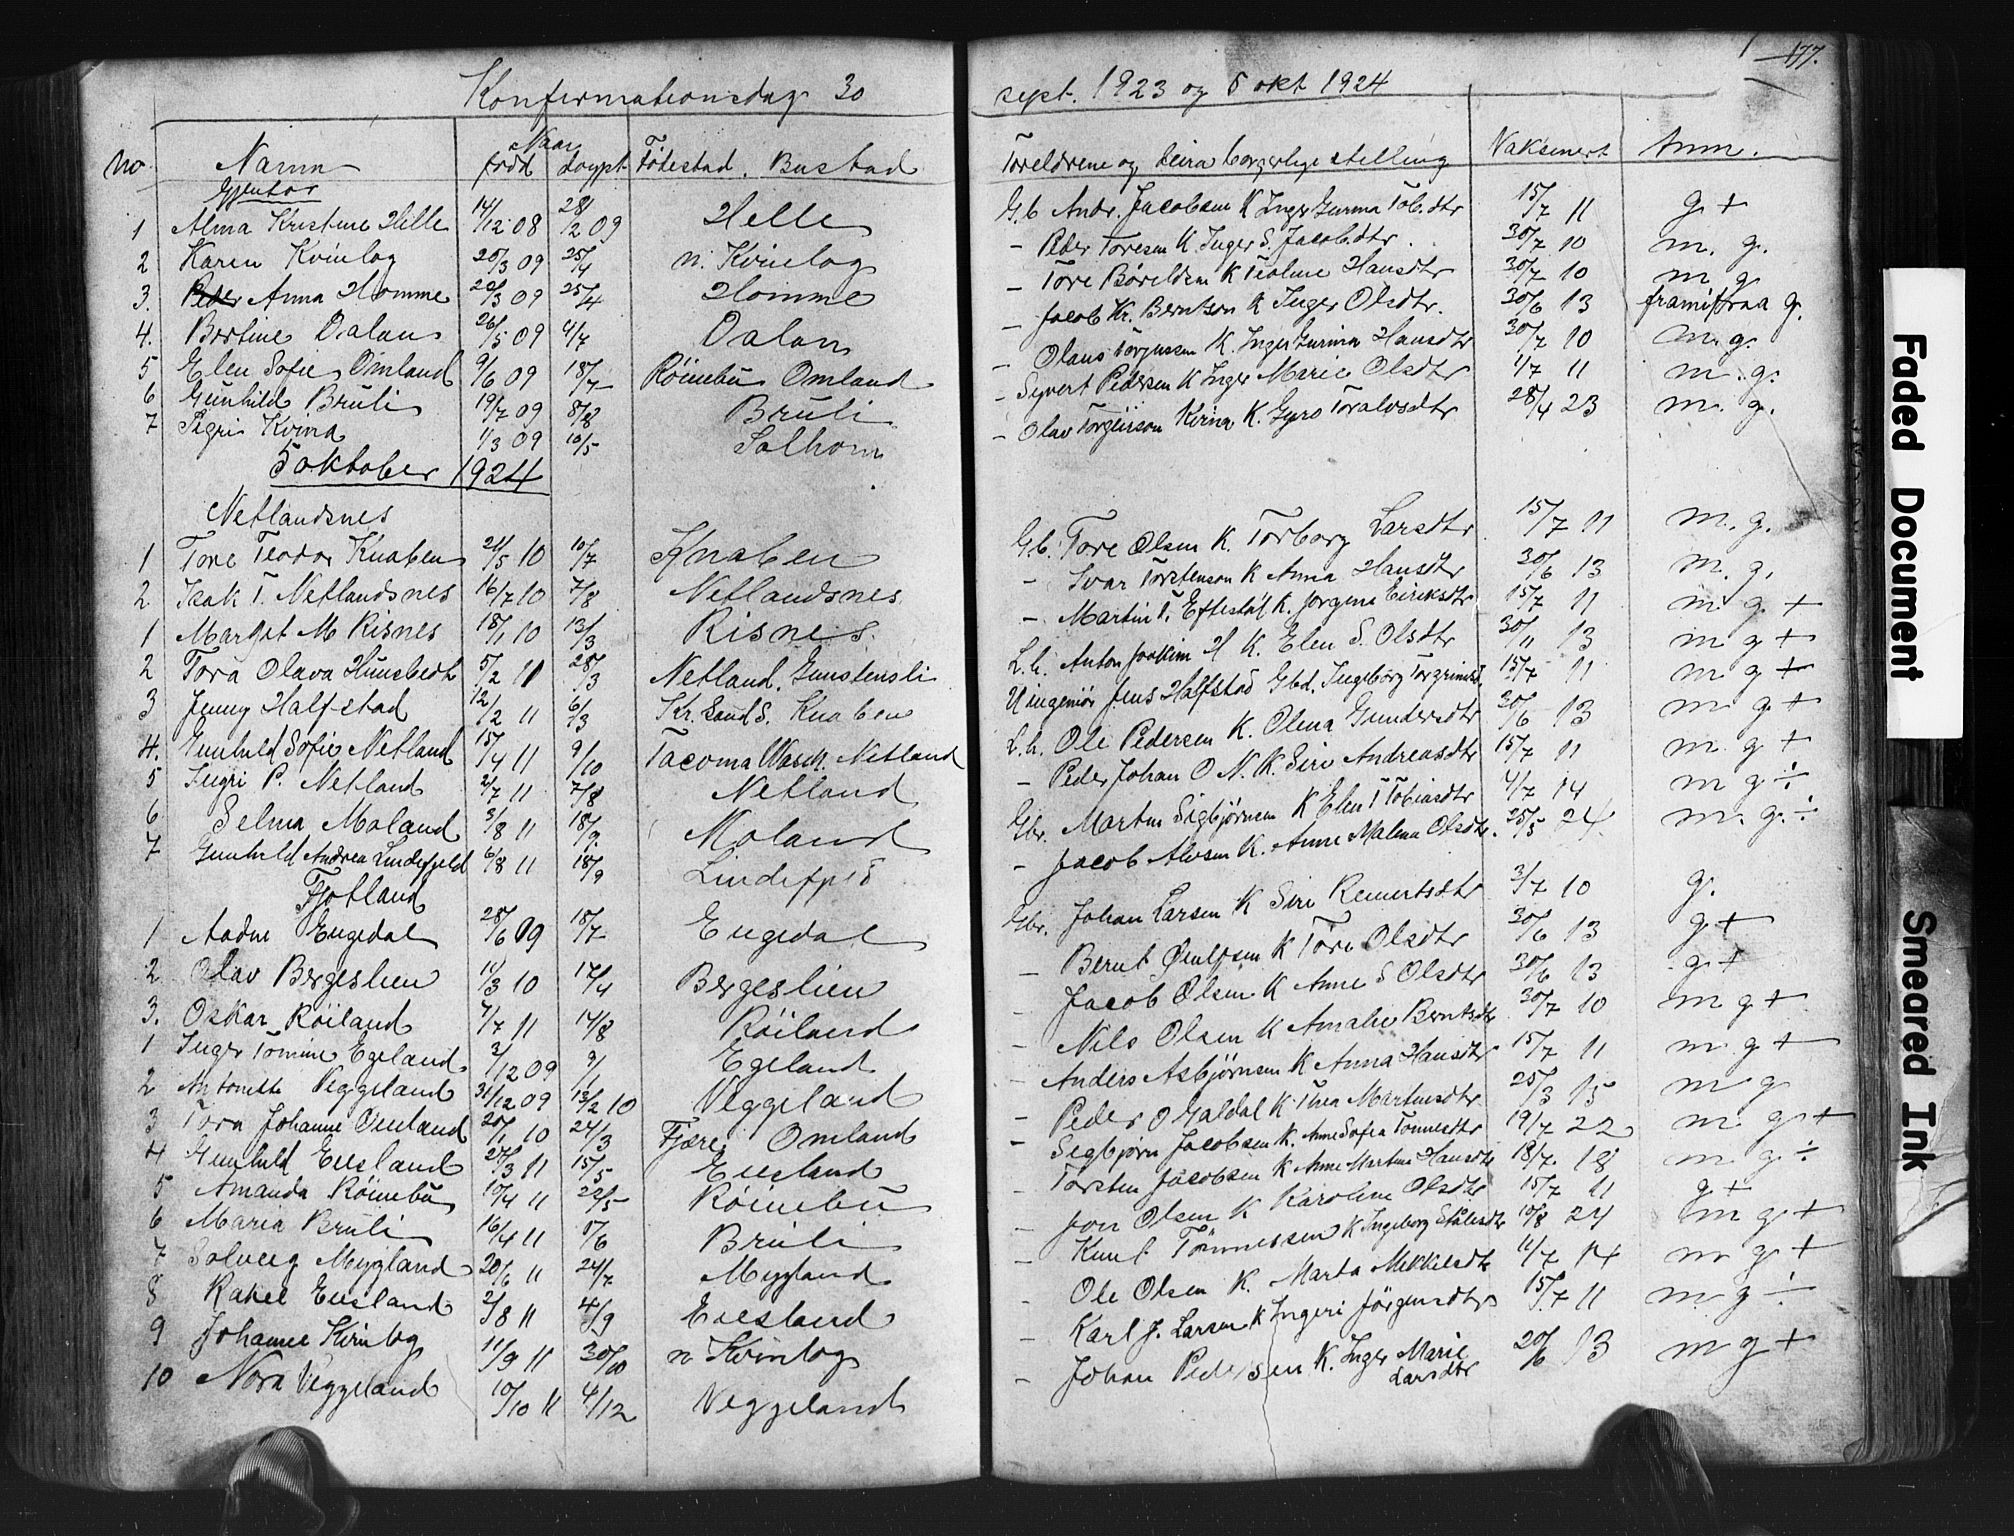 177.
Konfirmationsdag 30 sept. 1923 og 5 okt 1924
No. Namn Naar født døypt Fødestad. Bustad Foreldrene og deira borgerlige stelling Vaksinert Anm.
Gjentor
1 Alma Kristine Helle 14/12 08 28/2 09 Helle Gb Andr. Jacobsen K Inger Gurina Tob.dtr 15/7 11 g +
2 Karen Kvinlog 20/3 09 25/4 n. Kvinlog – Peder Toresen K Inger S. Jacobdtr. 30/7 10 m. g.
3. Anna Homme 20/3 09 25/4 Homme – Tore Børeldsen K Hansdtr 30/7 10 m g
4. Bertine Dalan 26/5 09 4/7 Dalan – Jacob Kr. Berntson K Inger Olsdtr. 30/6 13 g.
5 Elen Sofie Omland 9/6 09 18/7 Røinebu Omland – Olaus Torjussen K. Inger Gurina Hansdtr 30/7 10 m. g.
6 Gunhild Bruli 19/7 09 8/8 Bruli – Syvert Pedersen K Inger Marie Olsdtr 1/7 11 m. g.
7 Sigri Kvina 1/3 09 10/5 Solhom – Olav Torgeirson Kvina K. Gyro Toralvsdtr 28/4 23 m. g.
5 oktober 1924
Netlandsnes
1 Tore Teodor Knaben 21/5 10 10/7 Knaben Gb. Tore Olsen K. Torborg Larsdtr 15/7 11 m. g.
2 Isak T. Netlandsnes 16/7 10 7/8 Netlandsnes – Torstenson K Anna Hansdtr 30/6 13 m. g.
1 Margit M Risnes 18/1 10 13/3 Risnes. – Martin T. Eftestøl K. Jorgine Eiriksdtr 15/7 11 m g +
2 Tora Olava Hunsbedt 5/2 11 28/3 Netland. Gunstensli L.h. Anton Joakim H K. Elen S. Olsdtr 30/11 13 m g +
3 Jenny Halfstad 12/2 11 6/3 Kr. Sand S. Knaben Ningeniør Jens Halfstad Gbd. Ingeborg 15/7 11 m g +
4. Gunhild Sofie Netland 15/4 11 9/10 Tacoma Wasch. Netland L.h. Ole Pedersen K. Olena Gundersdtr 30/6 13 m g +
5 Ingri P. Netland 2/7 11 7/8 Netland – Peder Johan O N. K. Siri Andreasdtr 15/7 11 m g +
6 Selma Moland 3/8 11 18/9. Moland Gbr. Martin Sigbjørnsen K Elen T Tobiasdtr 4/7 14 m g ÷
7 Gunhild Andrea Lindefjeld 6/8 11 18/9 – Jacob Alvsen K. Anne Malena Olsdtr. 25/5 24. m. g. ÷
Fjotland
1 Aadne Engedal 28/6 09 18/7 Engedal Gbr. Johan Larsen K Siri Reinertsdtr 3/7 10 g.
2 Olav Bergeslien 11/3 10 17/4 Bergeslien – Bernt K Tore Olsdtr 30/6 13 g +
3. Oskar Røiland 7/7 11 14/8 Røiland – Jacob Olsen K Anne S Olsdtr 30/6 13 g +
1 Inger Tomine Egeland 3/12 09 9/1 Egeland – Nils Olsen K Amalie Berntsdtr 30/7 10 m g +
2 Antonette Veggeland 31/12 09 13/2 10 Veggeland – Anders Asbjørnsen K Anna Hansdtr 15/7 11 m g +
3 Tora Johanne Omland 20/1 10 24/3 Omland – Peder O Galdal K Thea Martinsdtr 25/3 15 m g
4 Gunhild Eiesland 27/3 11 15/5 Eiesland – Segbjørn Jacobsen K. Anne Sofia Tonnesdtr 19/7 22 m g +
5 Amanda Røinebu 10/4 11 22/5 Røinebu – Torsten Jacobsen K Anne Martine Hansdtr 18/7. 18 m g ÷
6 Maria Bruli 16/4 11 5/6 Bruli – Jon Olsen K Karoline Olsdtr 15/7 11 g +
7 Solveig Mygland 20/6 11 24/7 Mygland – Knut Tønnessen K Ingeborg 10/8 24 m g +
8 Rakel Eiesland 2/8 11 4/9 Eiesland – Ole Olsen K. Marta Mikkelsdtr 11/7 14 m g +
9 Johanne Kvinlog 11/9 11 30/10 n Kvinlog – Karl J. Larsen K Ingeri Jörgensdtr 15/7 11 m g ÷
10 Nora Veggeland 10/10 11 4/12 Veggeland – Johan Pedersen K. Inger Marie Larsdtr 20/6 13 m g +
Faded Document
Smeared Ink